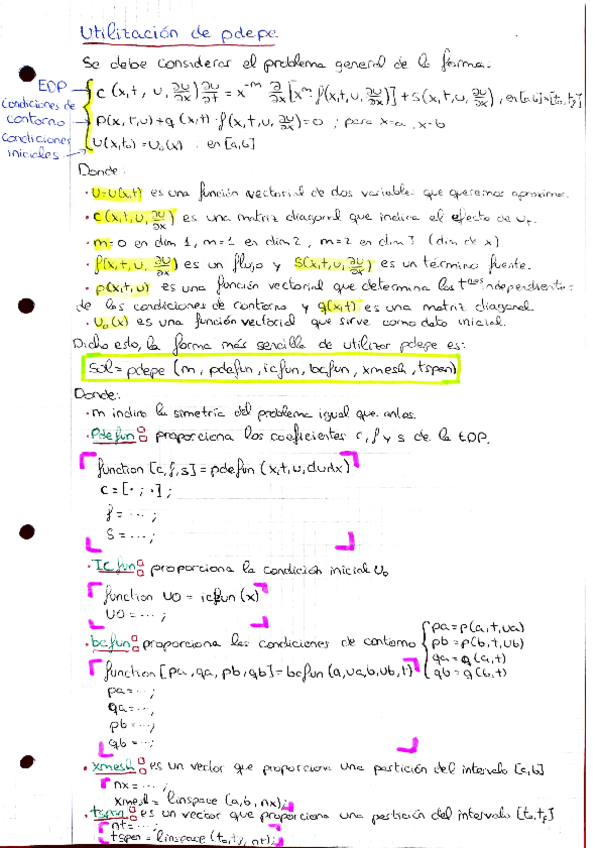 Utilización de pdepe.
Se debe considerar el problema general de la forma:
EDP
Condiciones de contorno
Condiciones iniciales
c(x,t,u,∂u/∂x)∂u/∂t = x^-m ∂/∂x[x^m·f(x,t,u,∂u/∂x)] + S(x,t,u,∂u/∂x), en [a,b]x[t₀,t_f]
p(x,t,u)+q(x,t)·f(x,t,u,∂u/∂x)=0 ; para x=a, x=b
U(x,t₀)=U₀(x) en [a,b]
Donde:
· U=U(x,t) es una función vectorial de dos variables que queremos aproximar.
· c(x,t,u,∂u/∂x) es una matriz diagonal que indica el efecto de u_t.
· m=0 en dim 1, m=1 en dim 2, m=2 en dim 3 (dim de x)
· f(x,t,u,∂u/∂x) es un flujo y S(x,t,u,∂u/∂x) es un término fuente.
· p(x,t,u) es una función vectorial que determina los t^nos independientes
de las condiciones de contorno y q(x,t) es una matriz diagonal
· U₀(x) es una función vectorial que sirve como dato inicial.
Dicho esto, la forma más sencilla de utilizar pdepe es:
Sol = pdepe (m, pdefun, icfun, bcfun, xmesh, tspan)
Donde:
· m indica la simetría del problema igual que antes.
· Pdefun: proporciona los coeficientes c, f y s de la EDP.
function [c,f,s] = pdefun (x,t,u,dudx)
c = [· ; ·] ;
f = ... ;
S = ... ;
· Icfun: proporciona la condición inicial U₀
function U0 = icfun (x)
U0 = ... ;
· bcfun: proporciona las condiciones de contorno
pa = p(a,t,ua)
pb = p(b,t,ub)
qa = q(a,t)
qb = q(b,t)
function [pa,qa,pb,qb] = bcfun (a,ua,b,ub,t)
pa = ... ;
qa = ... ;
pb = ... ;
qb = ... ;
· xmesh: es un vector que proporciona una partición del intervalo [a,b]
nx = ... ;
xmesh = linspace (a,b,nx);
· tspan: es un vector que proporciona una partición del intervalo [t₀,t_f]
nt = ... ;
tspan = linspace (t₀,t_f,nt);